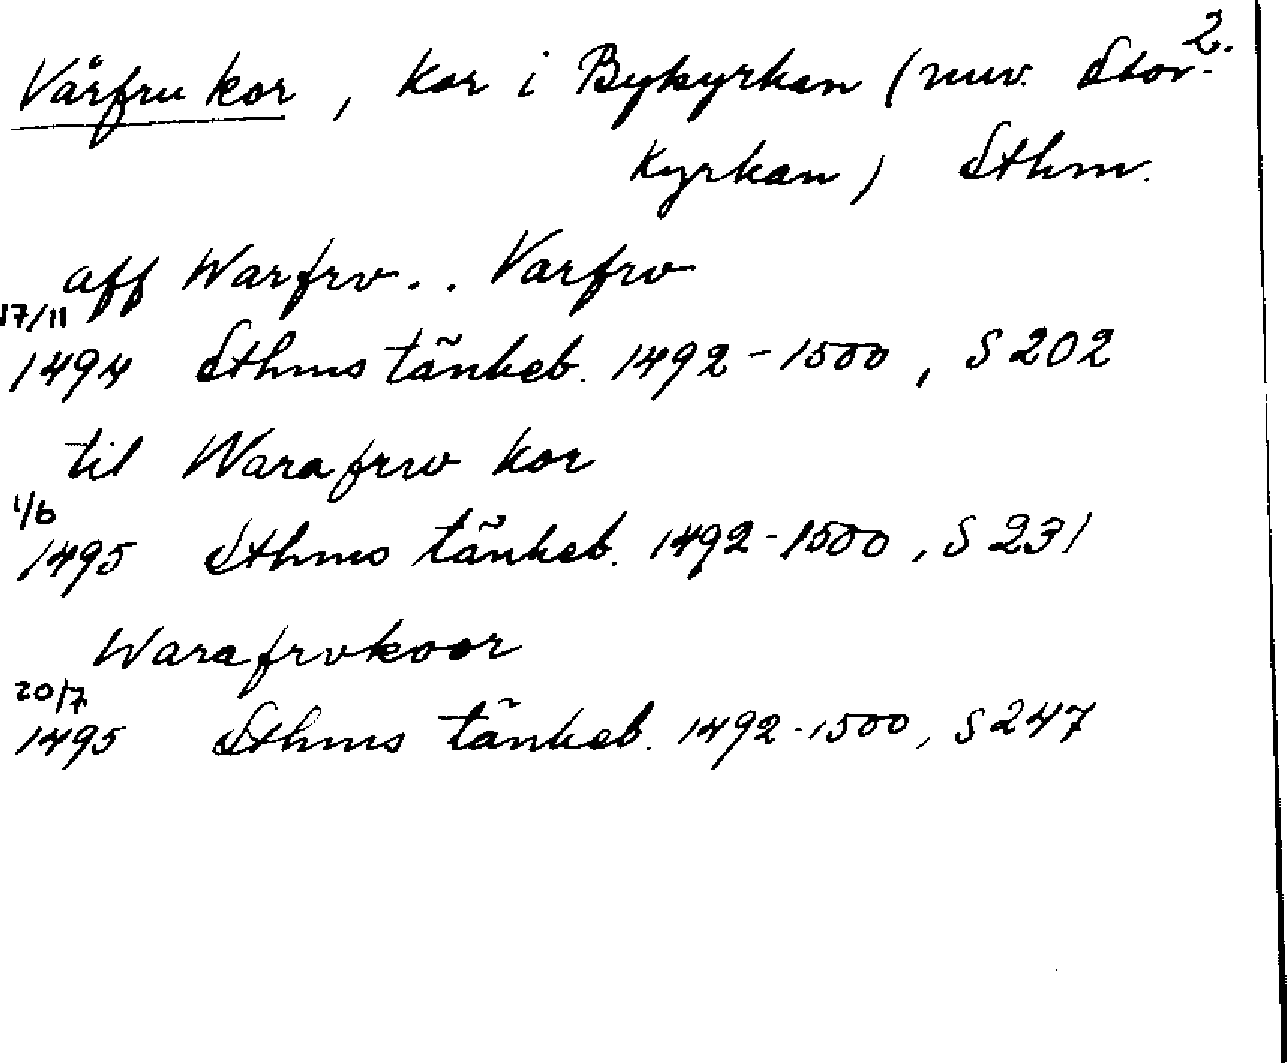 2.
Vårfru kor, kor i Bykyrkan (nuv. Stor-
kyrkan) Sthm.
aff Warfrv.. Varfrv
17/11
1494 Sthms tänkeb. 1492-1500, S 202
til Warafrw kor
1/6
1495 Sthms tänkeb. 1492-1500, S 231
Warafrvkoor
20/7
1495 Sthms tänkeb. 1492-1500, S 247